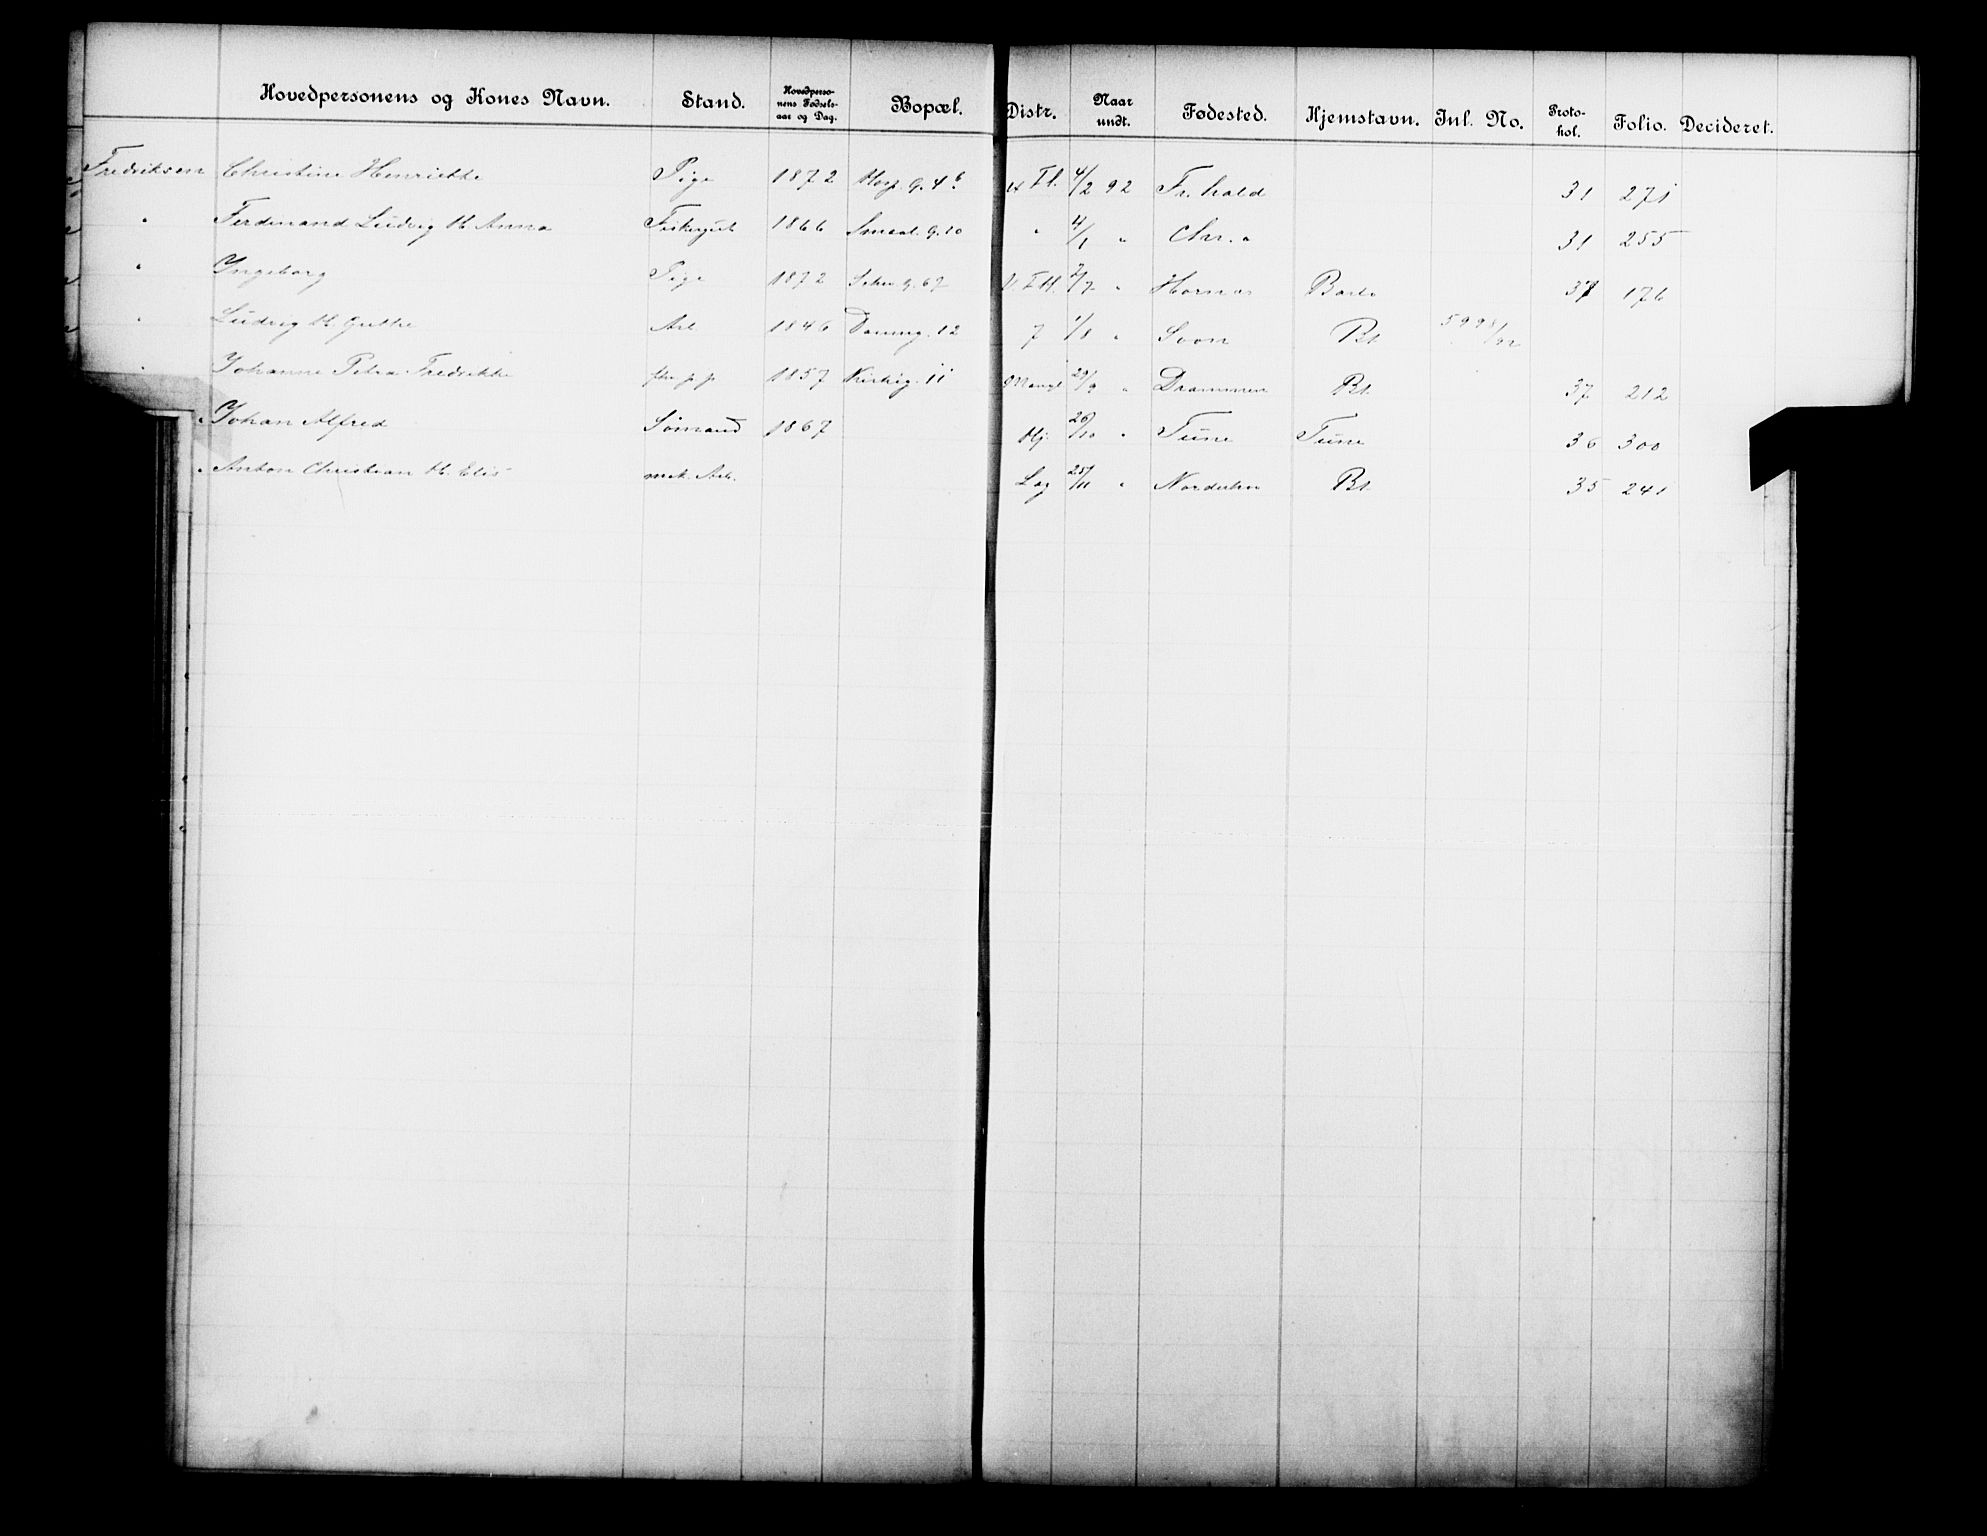 Hovedpersonens og Kones Navn. Stand. Hovedperso-nens Fødsels-aar og Dag. Bopæl. Distr. Naar undt. Fødested. Hjemstavn. Inl. No. Proto-kol. Folio. Decideret.
Fredriksen Christine Henriette Pige 1872 4/2 92 Fr.hald 31 271
" Ferdinand Ludvig H. Anna 1866 Smaal.g. 10 " 4/1 " Chr.a 31 255
" Ingeborg Pige 1872 2/7 " 37 176
" Ludvig H. Arb 1846 12 7 1/8 " Soon Bt 5998/92
" Johanne Petra Fredrikke 1857 Kirkeg. 11 29/9 " Drammen Bt. 37 212
" Johan Alfred Sømand 1867 Hj. 26/10 " Tune Tune 36 300
" Anton Christian H. Elis mek. Arb. Lag 25/11 " Bt 35 241